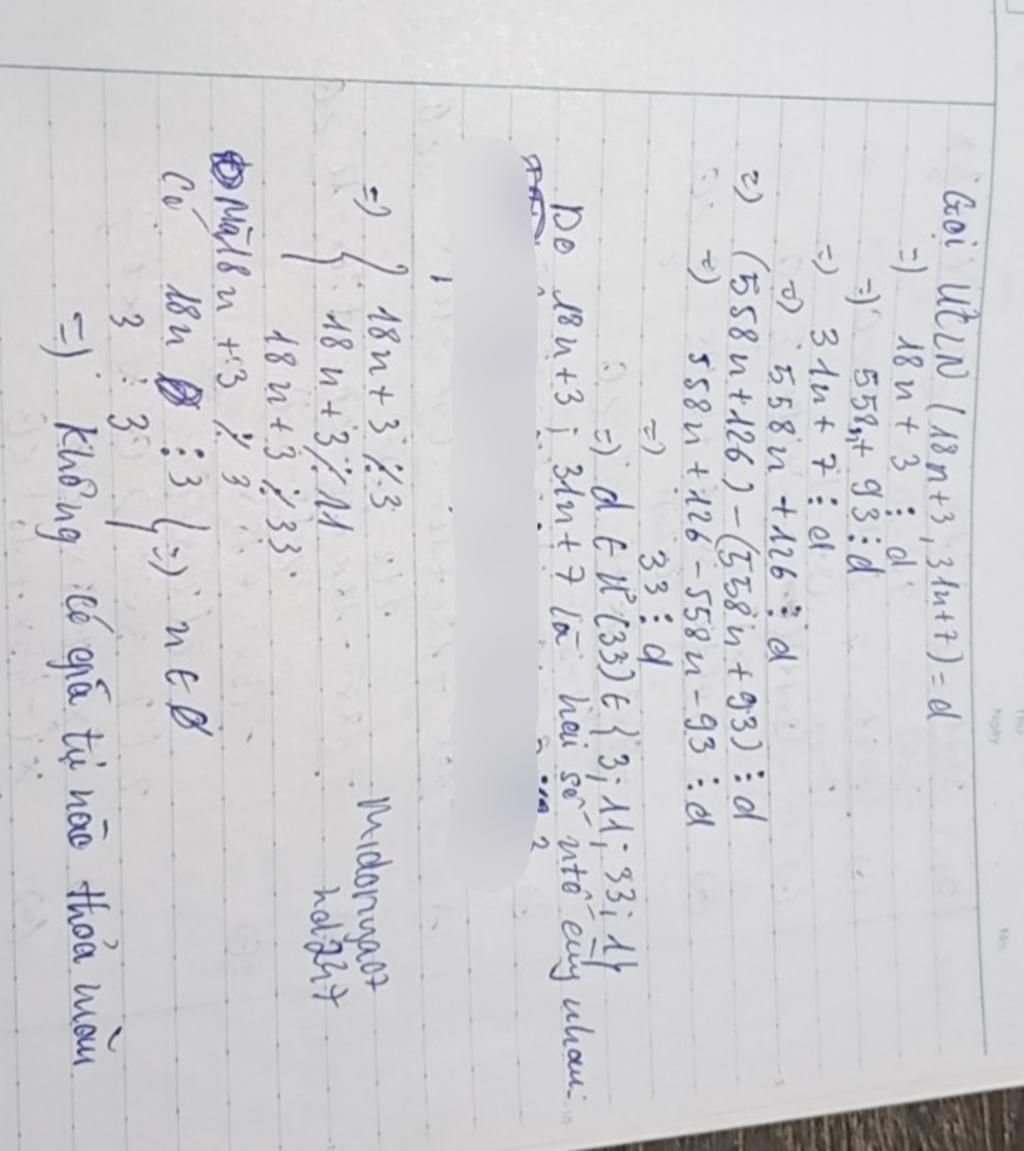 Gọi ƯCLN (18n+3, 31n+7) = d
=) 18n + 3 ⋮ d
=) 558n + 93 ⋮ d
=) 31n + 7 ⋮ d
=) 558n + 126 ⋮ d
=) (558n+126) - (558n+93) ⋮ d
=) 558n + 126 - 558n - 93 ⋮ d
=) 33 ⋮ d
=) d ∈ Ư(33) ∈ { 3; 11; 33; 1}
Do 18n+3; 31n+7 là hai số ntố cùng nhau.
=) { 18n+3 ⋮̸ 3
18n+3 ⋮̸ 11
18n+3 ⋮̸ 33.
Midoriya07
hd247
Mà 18n + 3 ⋮̸ 3
Có 18n ⋮ 3
3 ⋮ 3 } =) n ∈ ∅
=) không có giá trị nào thỏa mãn